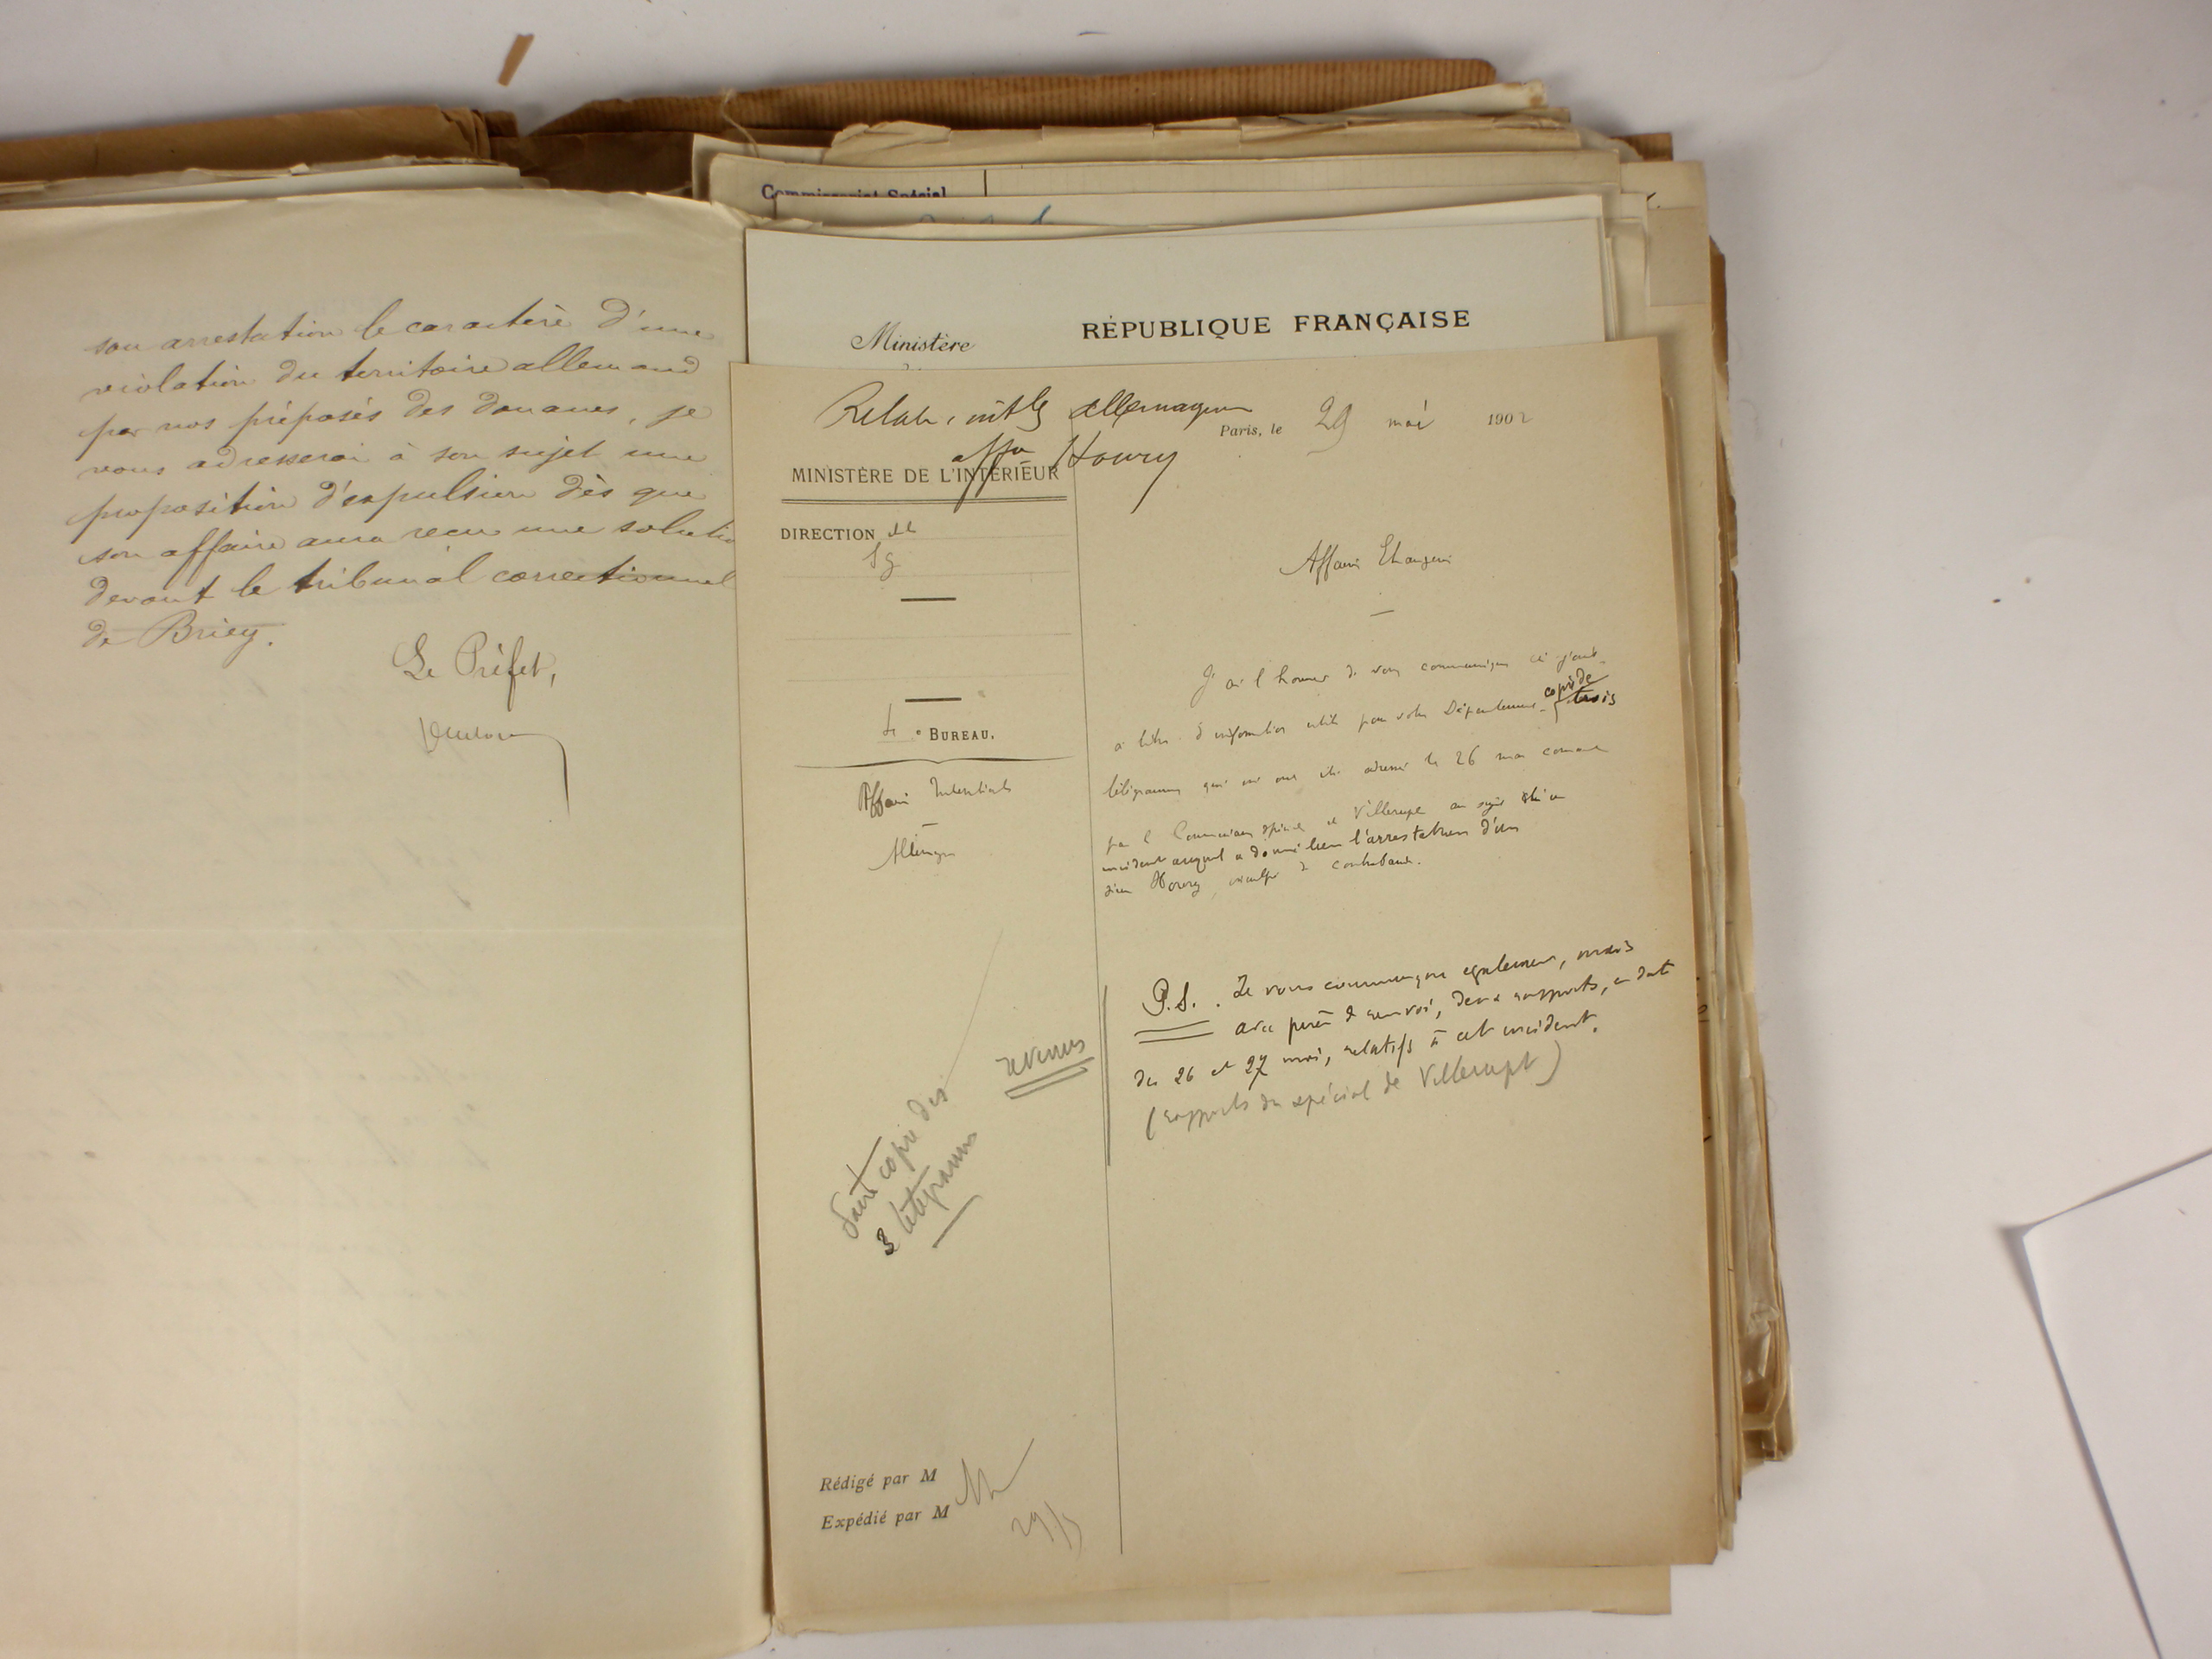 son arrestation le caractère d'une
violation du territoire allemand
par nos préposés des douanes, je
vous adresserai à son sujet une
proposition d'expulsion dès que
son affaire aura reçu une solutio
devant le tribunal correctionnel
de Briey.
Le Préfet,
Commissariat Spécial
Ministère
RÉPUBLIQUE FRANÇAISE
allemagne
Paris, le 29 mai 1902
MINISTÈRE DE L'INTÉRIEUR
DIRECTION de
Sg
4e BUREAU.
Affaires
Allemagne
Affaires Etrangères
J'ai l'honneur de vous communiquer ci-joint
à titre d'information utile pour votre Département copie de trois
télégrammes qui m'ont été adressés le 26 mai courant
par le Commissaire spécial de Villerupt au sujet d'un
incident auquel a donné lieu l'arrestation d'un
sieur Houry, inculpé de contrebande.
P.S. . Je vous communique également, mais
avec prière de renvoi, deux rapports, en date
des 26 et 27 mai, relatifs à cet incident.
(rapports du spécial de Villerupt)
revenus
Faire copie des
3 télégrammes
Rédigé par M
Expédié par M
29/5